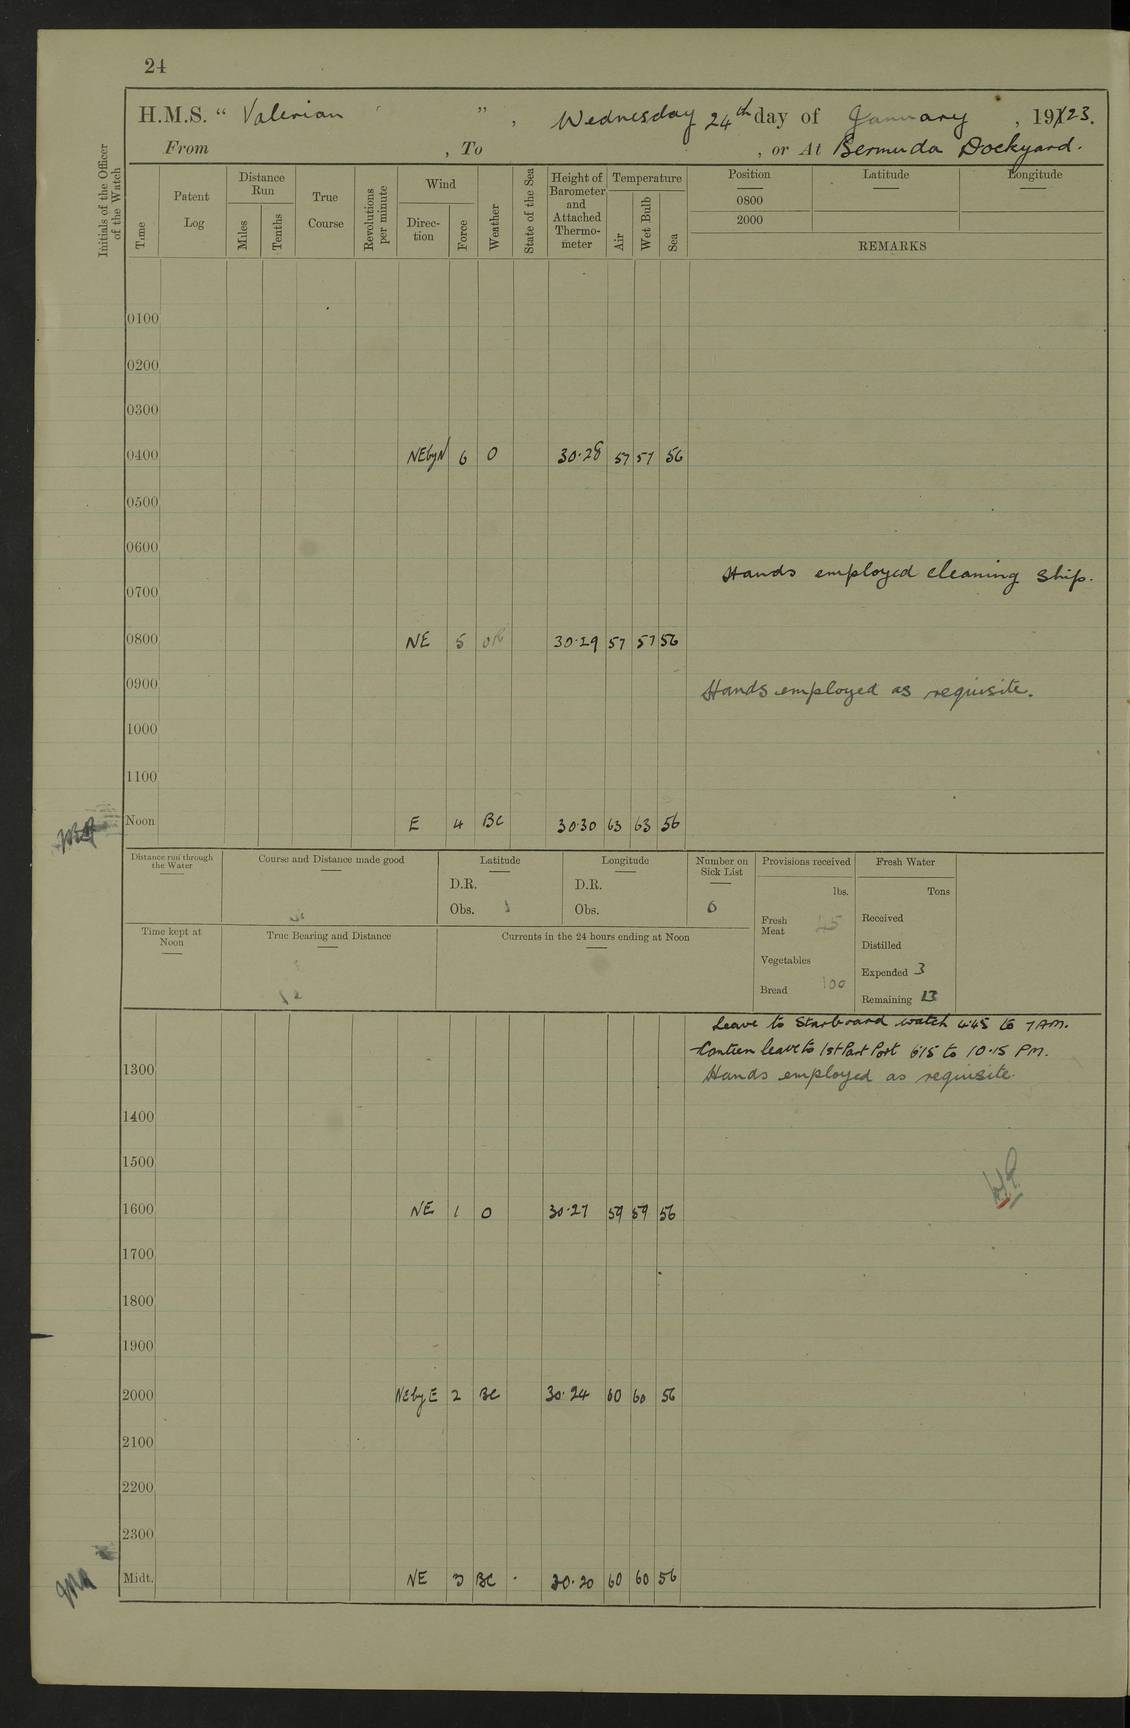 24
H.M.S. “ Valerian ” , Wednesday 24th day of January , 1923.
From , To , or At Bermuda Dockyard.
Initials of the Officer of the Watch
Time
Patent Log
Distance Run
Miles
Tenths
True Course
Revolutions per minute
Wind
Direc-tion
Force
Weather
State of the Sea
Height of Barometer and Attached Thermo-meter
Temperature
Air
Wet Bulb
Sea
Position Latitude Longitude
0800
2000
REMARKS
0100
0200
0300
0400 NEbyN 6 O 30.28 57 57 56
0500
0600
Hands employed cleaning ship.
0700
0800 NE 5 OR 30.29 57 57 56
0900 Hands employed as requisite.
1000
1100
Noon E 4 BC 30.30 63 63 56
Distance run through the Water
Course and Distance made good
Latitude
D.R.
Obs.
Longitude
D.R.
Obs.
Number on Sick List
0
Provisions received
lbs.
Fresh Meat 45
Vegetables
Bread 100
Fresh Water
Tons
Received
Distilled
Expended 3
Remaining 13
Time kept at Noon
True Bearing and Distance
Currents in the 24 hours ending at Noon
Leave to Starboard watch 4.45 to 7 AM.
Canteen leave to 1st Part Port 6.15 to 10.15 PM.
1300 Hands employed as requisite.
1400
1500
1600 NE 1 O 30.27 59 59 56
1700
1800
1900
2000 NEbyE 2 BC 30.24 60 60 56
2100
2200
2300
Midt. NE 3 BC 30.20 60 60 56